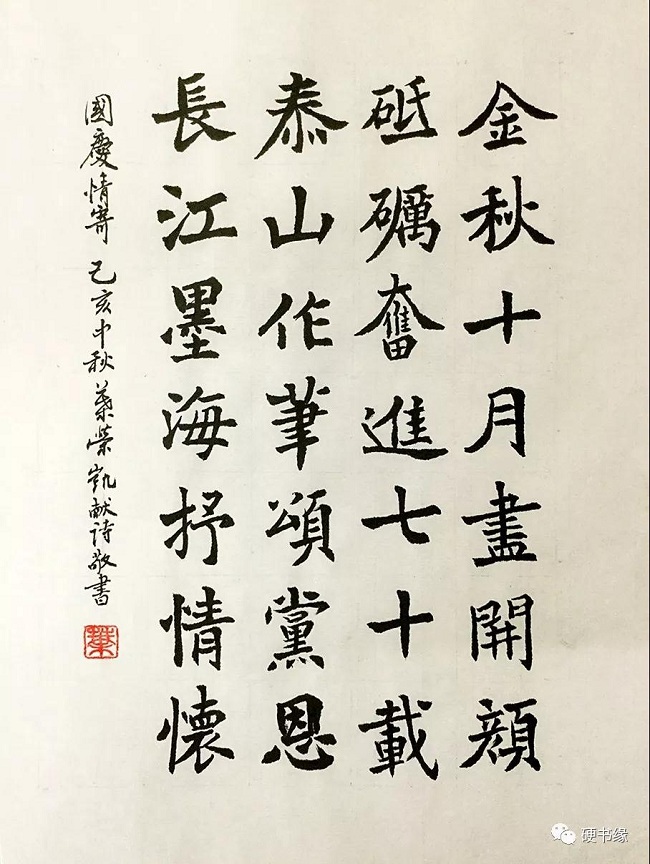 金秋十月盡開顔
砥礪奮進七十載
泰山作筆頌黨恩
長江墨海抒情懷
國慶情寄 己亥中秋葉榮凱献詩敬書
葉
硬书缘